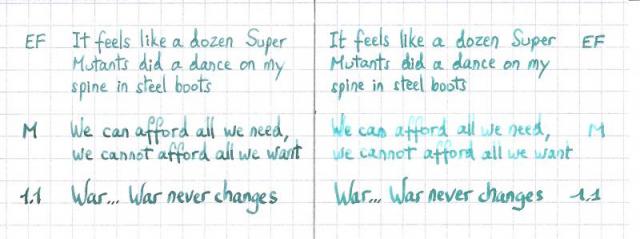 EF It feels like a dozen Super
Mutants did a dance on my
spine in steel boots
M We can afford all we need,
we cannot afford all we want
1.1 War... War never changes
It feels like a dozen Super EF
Mutants did a dance on my
spine in steel boots
We can afford all we need, M
we cannot afford all we want
War... War never changes 1.1